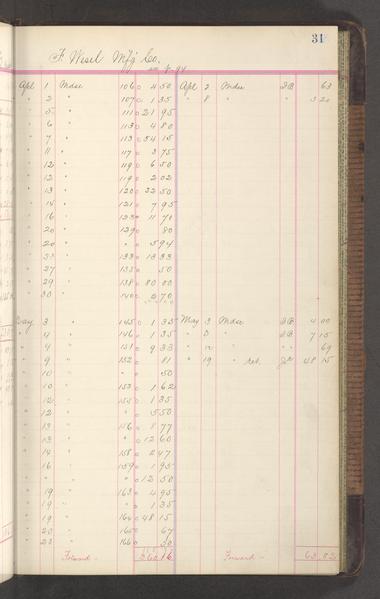 31
F. Wesel Mfg Co.
Apl 1 Mdse 106 4 50 Apl 2 Mdse 63
" 2 " 107 1 35 " 8 " " 3 20
" 5 " 111 21 95
" 6 " 113 4 80
" 7 " 113 54 15
" 11 " 117 3 75
" 12 " 119 6 50
" 12 " 119 2 02
" 13 " 120 32 50
" 14 " 121 7 95
" 16 " 123 11 70
" 20 " 129 80
" 20 " " 5 94
" " 133 13 33
" 27 " 135 50
" 29 " 138 80 00
" 30 " 140 2 70
May 3 " 145 1 35 May 3 Mdse 4 00
" 4 " 146 1 35 " " 7 15
" 4 " 151 9 33 " " " 69
" 9 " 152 81 " 19 " 48 15
" 10 " 50
" 10 " 153 1 62
" 12 " 154 1 35
" 12 " " 5 50
" 13 " 156 1 77
" 13 " " 12 60
" 14 " 158 2 47
" 16 " 159 1 95
" " " 12 50
" 19 " 163 4 95
" 19 " " 1 35
" 19 " 164 48 15
" 20 " 165 67
" 23 " 166 50
Forward 360 16 Forward 63 82